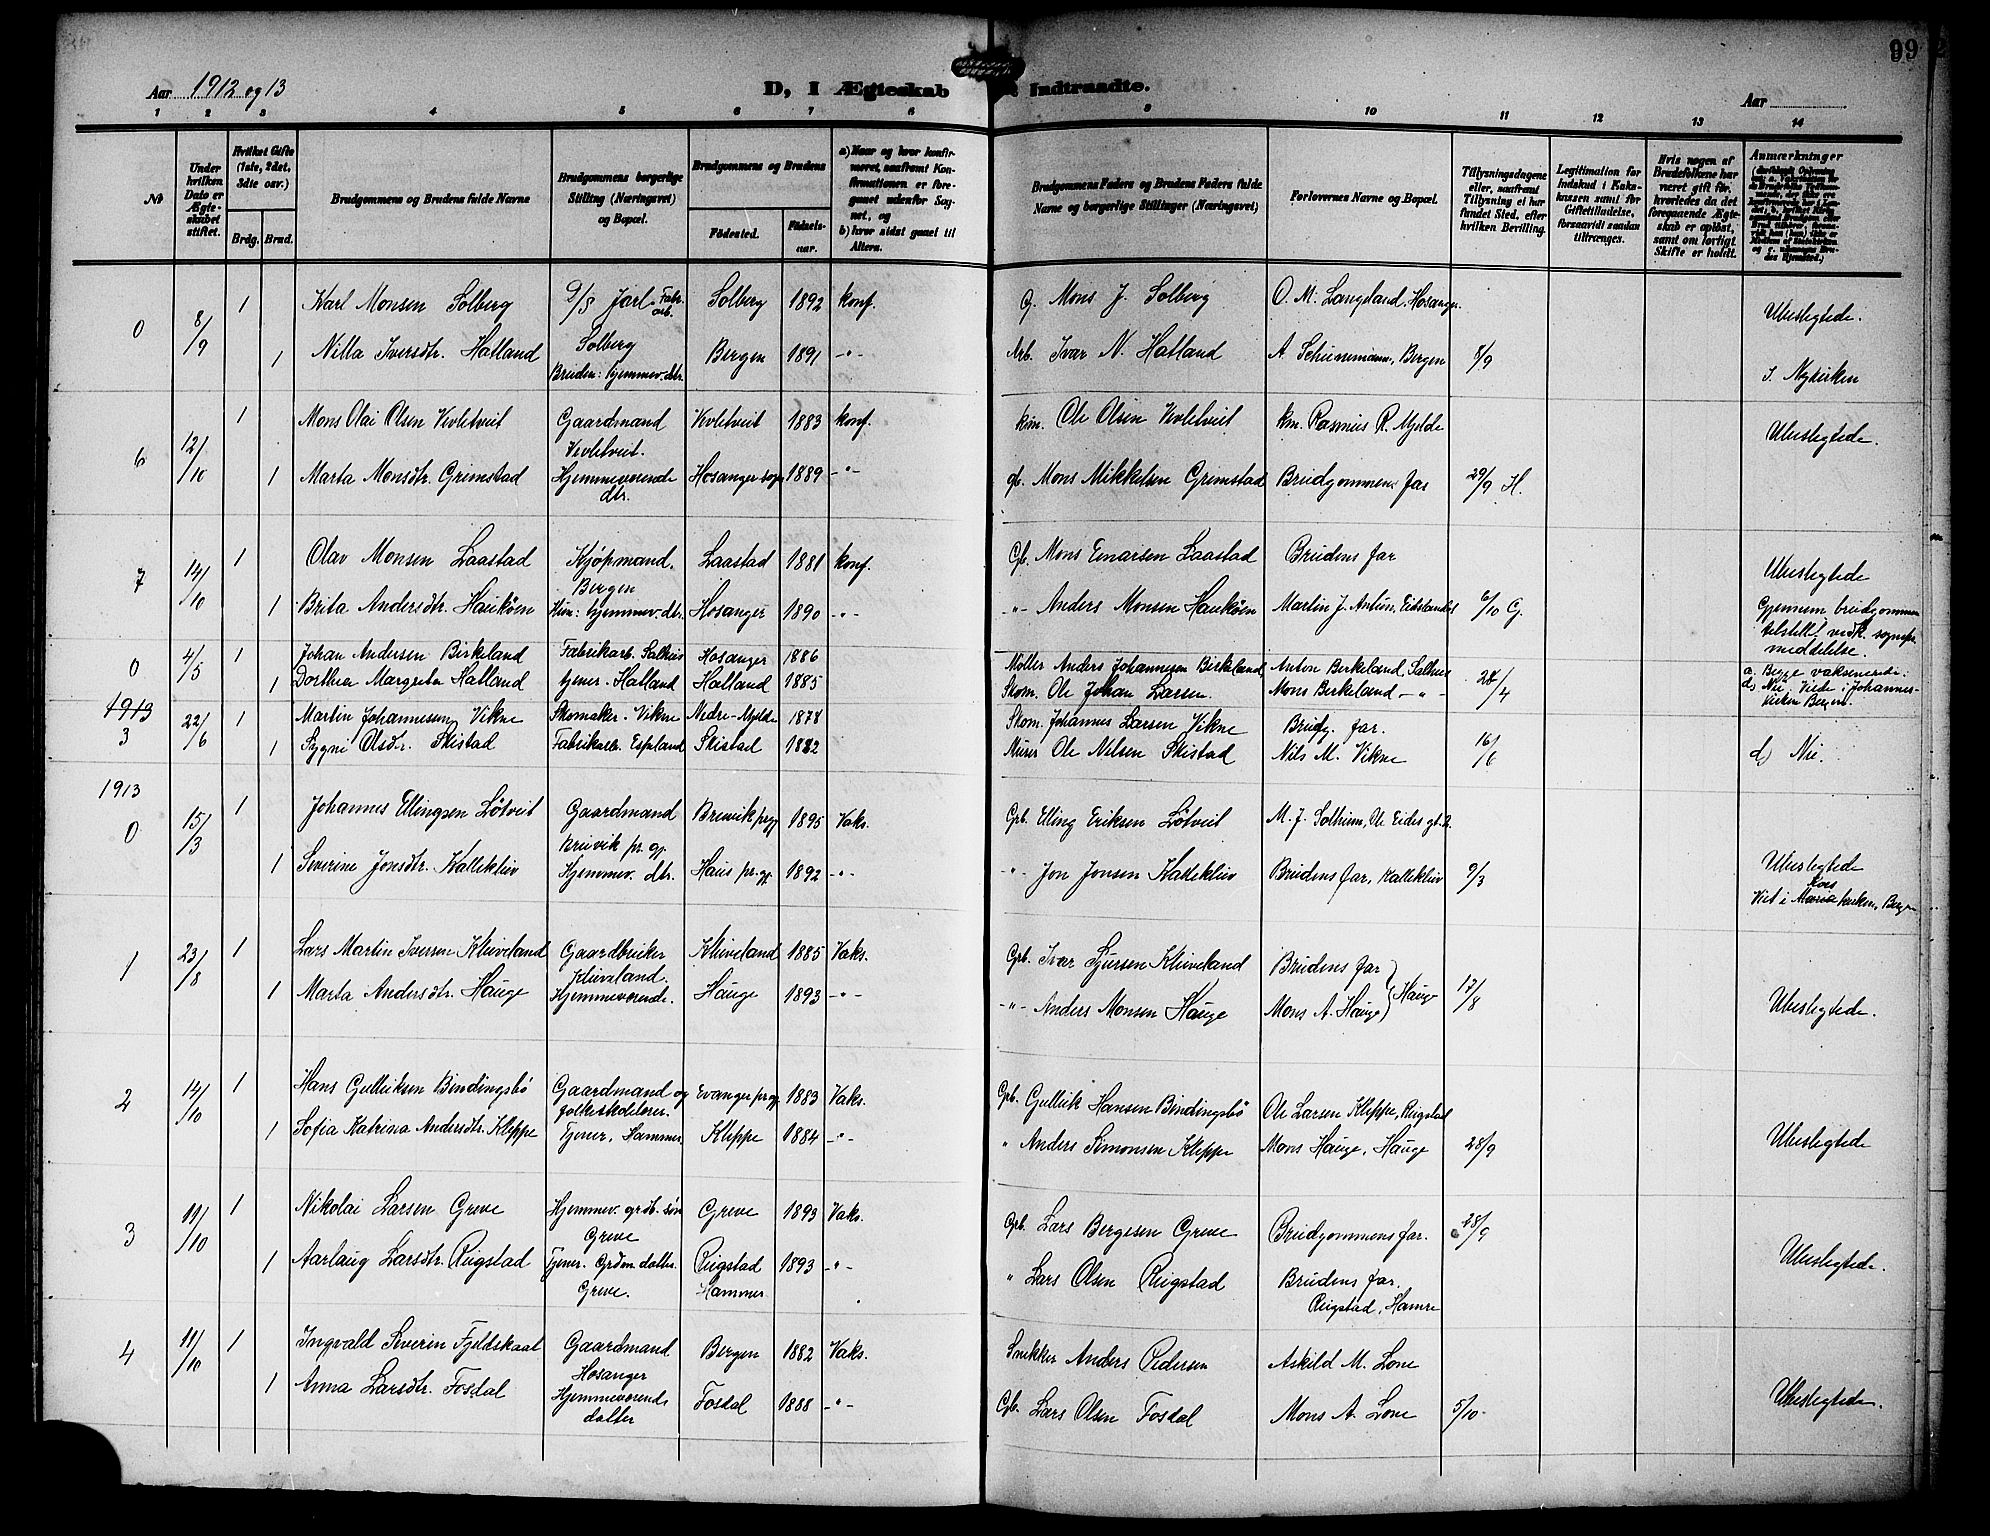 Aar 1912 og 13
D, I Ægteskab Indtraadte.
Aar
99
1 2 3 4 5 6 7 8 9 10 11 12 13 14
No
Under hvilken Dato er Ægteskabet stiftet.
Hvilket Gifte (1ste, 2det, 3die osv.)
Brdg. Brud.
Brudgommens og Brudens fulde Navne
Brudgommens borgerlige Stilling (Næringsvei) og Bopæl.
Brudgommens og Brudens
Födested. Födselsaar.
a) Naar og hvor konfirmeret, saafremt Konfirmationen er foregaaet udenfor Sognet, og
b) hvor sidst gaaet til Alters.
Brudgommens Faders og Brudens Faders fulde Navne og borgerlige Stillinger (Næringsvei)
Forlovernes Navne og Bopæl.
Tillysningsdagene eller, saafremt Tillysning ei har fundet Sted, efter hvilken Bevilling.
Legitimation for Indskud i Enkekassen samt for Giftetilladelse, forsaavidt saadan tiltrænges.
Hvis nogen af Brudefolkene har været gift för, hvorledes da det foregaaende Ægteskab er oplöst, samt om lovligt Skifte er holdt.
Anmærkninger
0 8/9 1 Karl Monsen Solberg 9/5 Jarl Fabr. arb. Solberg 1892 konf. G. Mons J. Solberg O. M. Langeland, Hosanger Ubeslegtede.
Solberg
1 Nilla Iversdtr. Hatland Bergen 1891 -"- Arb. Ivar N. Hatland A. Schunemann, Bergen 8/9
Bruden: hjemmev. dtr. I Nykirken
6 12/10 1 Mons Olai Olsen Kvletveit Gaardmand Kvletveit 1883 konf. km. Ole Olsen Kvletveit km. Rasmus R. Mjelde Ubeslegtede.
Kvletveit.
1 Marta Monsdtr. Grimstad Hjemmeværende dtr. Hosanger sogn 1889 -"- gb. Mons Mikkelsen Grimstad Brudgommens far 29/9 H.
7 14/10 1 Olav Monsen Laastad Kjøpmand, Laastad 1881 konf. Gb. Mons Einarsen Laastad Brudens far Ubeslegtede
Bergen
1 Brita Andersdtr. Hauköen Hun: hjemmev. dtr. Hosanger 1890 -"- -"- Anders Monsen Hauköen Martin J. Antun, Eidslandet 6/10 G. Gjennem brudgommen
tilstillet vedk. sognepr.
middelelse.
0 4/5 1 Johan Andersen Birkeland Fabrikarb. Salhus Hosanger 1886 Møller Anders Johannesen Birkeland Anton Birkeland, Salhus 28/4 a. Begge vaksinerede.
1 Dorthea Margreta Hatland tjener. Hatland Hatland 1885 Skom. Ole Johan Larsen. Mons Birkeland -"- d, Nei. Viede i Johannes-
kirken Bergen.
1913
3 22/6 1 Martin Johannesen Vikne Skomaker. Vikne Nedre-Mjelde 1878 Skom. Johannes Larsen Vikne Brudg. far.
1 Sygni Olsdr. Skistad Fabrikarb. Espland Skistad 1882 Murer Ole Nilsen Skistad Nils M. Vikne 16/6 d) Nei.
1913
0 15/3 1 Johannes Ellingsen Lötveit Gaardmand Bruvik prgj 1895 Vaks. Grb. Elling Eriksen Lötveit M. J. Solheim, Ole Eides gt. 2.
Bruvik pr. gj.
1 Severine Jonsdtr. Kallekleiv Hjemmev. dtr. Haus pr. gj. 1892 -"- -"- Jon Jonsen Kallekleiv Brudens far, Kallekleiv 9/3 Ubeslegtede
Viet i Kors Maria kirken, Bergen
1 23/8 1 Lars Martin Iversen Kleiveland Gaardbruker Kleiveland 1885 Vaks. Grb. Ivar Sjursen Kleiveland Brudens far
Kleiveland.
1 Marta Andersdtr. Hauge Hjemmeværende. Hauge 1893 -"- -"- Anders Monsen Hauge Mons A. Hauge } Hauge 17/8 Ubeslegtede.
2 14/10 1 Hans Gulleiksen Bindingsbö Gaardmand og Evanger prgj 1883 Vaks. Grb. Gulleik Hansen Bindingsbö Ole Larsen Kleppe, Rugstad
folkeskolelærer.
1 Sofia Katrina Andersdtr. Kleppe Tjener, Hammer Kleppe 1884 -"- " Anders Simonsen Kleppe Mons Hauge, Hauge 28/9 Ubeslegtede
3 11/10 1 Nikolai Larsen Greve Hjemmev. grdb. sön Greve 1893 Vaks. Grb. Lars Bergesen Greve Brudgommens far. 28/9
Greve
1 Aarlaug Larsdtr. Rugstad Tjener. Grdm. datter. Rugstad 1893 -"- " Lars Olsen Rugstad Brudens far. Ubeslegtede.
Greve. Hammer Rugstad, Hamre
4 11/10 1 Ingvald Severin Fjeldskaal Gaardmand Bergen 1882 Vaks. Snekker Anders Pedersen Askild M. Lone
Hosanger
1 Anna Larsdtr. Fosdal Hjemmeværende datter Fosdal 1888 -"- Gb. Lars Olsen Fosdal Mons A. Lone 5/10 Ubeslegtede.